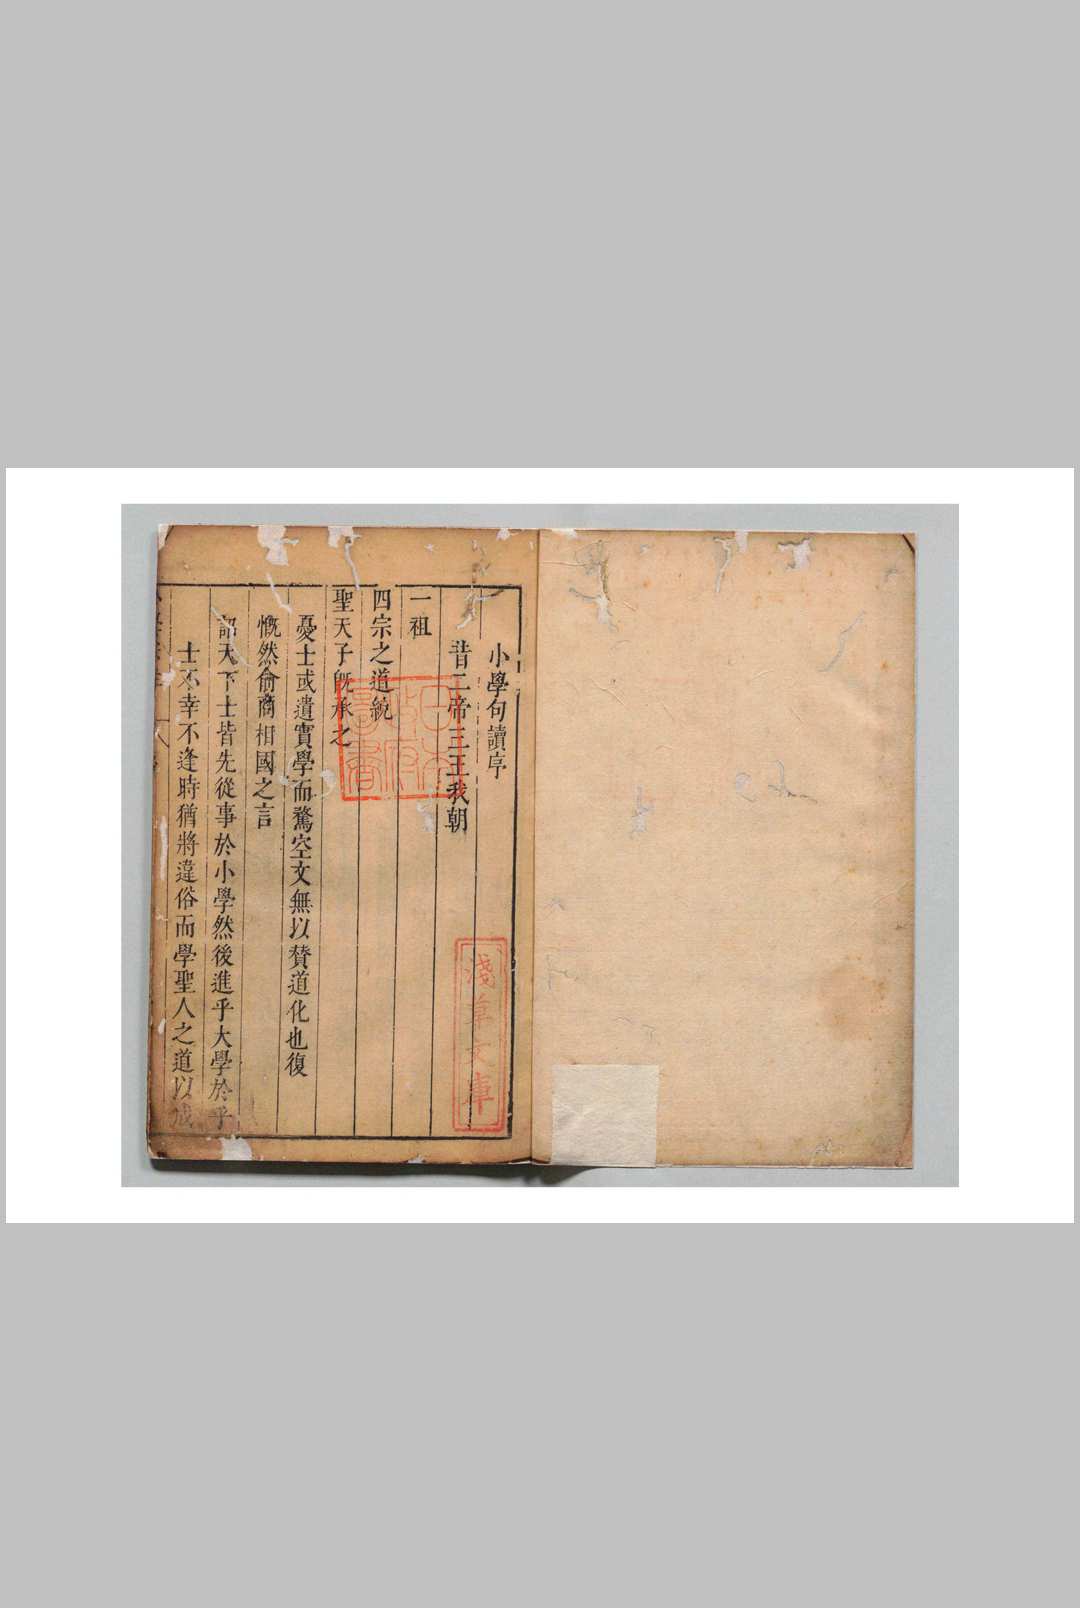 小學句讀序
昔二帝三王我朝
一祖
四宗之道統
聖天子旣承之
憂士或遺實學而騖空文無以賛道化也復
慨然俞商相國之言
詔天下士皆先從事於小學然後進乎大學於乎
士不幸不逢時猶將違俗而學聖人之道以成
淺草文庫